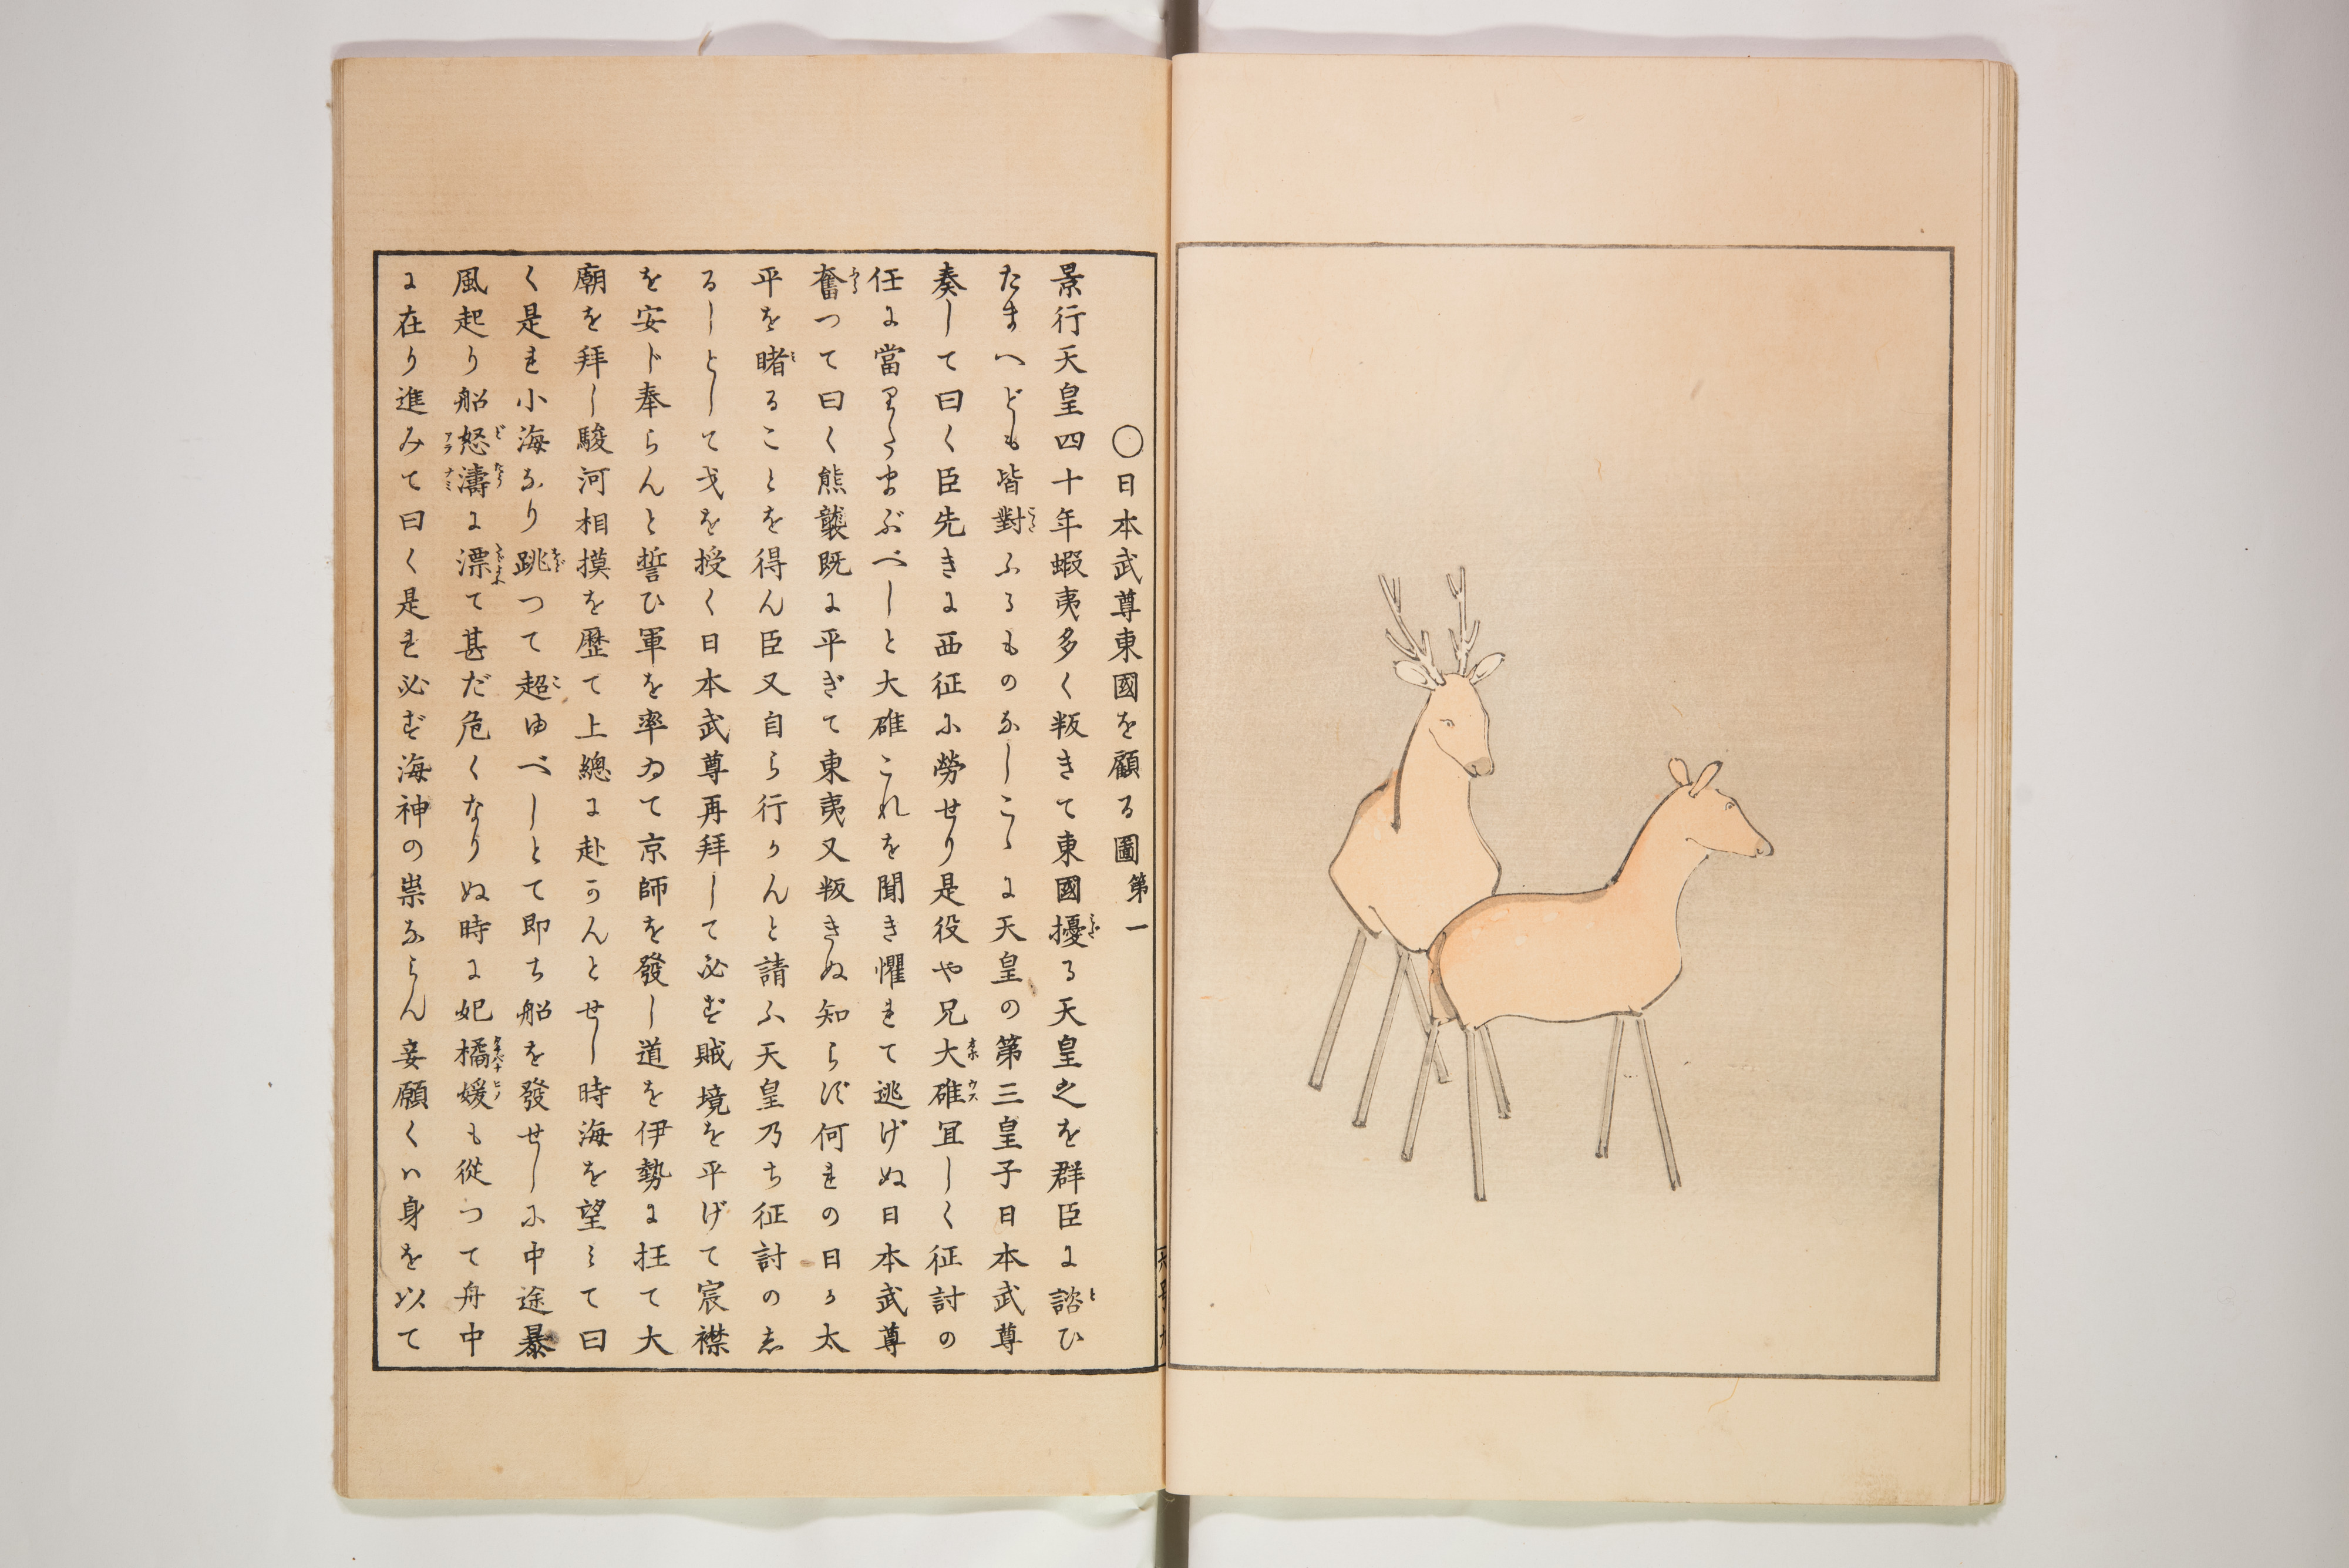 〇日本武尊東國を顧る圖 第一
景行天皇四十年蝦夷多く叛きて東國擾る天皇之を群臣に諮ひ
たまへども皆對ふるものなしこゝに天皇の第三皇子日本武尊
奏して曰く臣先きに西征に勞せり是役や兄大碓冝しく征討の
任に當りたまふべしと大碓これを聞き懼れて逃げぬ日本武尊
奮つて曰く熊襲既に平ぎて東夷又叛きぬ知らず何れの日か太
平を睹ることを得ん臣又自ら行かんと請ふ天皇乃ち征討のし
るしとして戈を授く日本武尊再拜して必ず賊境を平げて宸襟
を安んじ奉らんと誓ひ軍を率ゐて京師を發し道を伊勢に抂て大
廟を拜し駿河相摸を歴て上總に赴かんとせし時海を望みて曰
く是れ小海なり跳つて超ゆべしとて即ち船を發せしに中途暴
風起り船怒濤に漂て甚だ危くなりぬ時に妃橘媛も從つて舟中
に在り進みて曰く是れ必ず海神の祟ならん妾願くハ身を以て